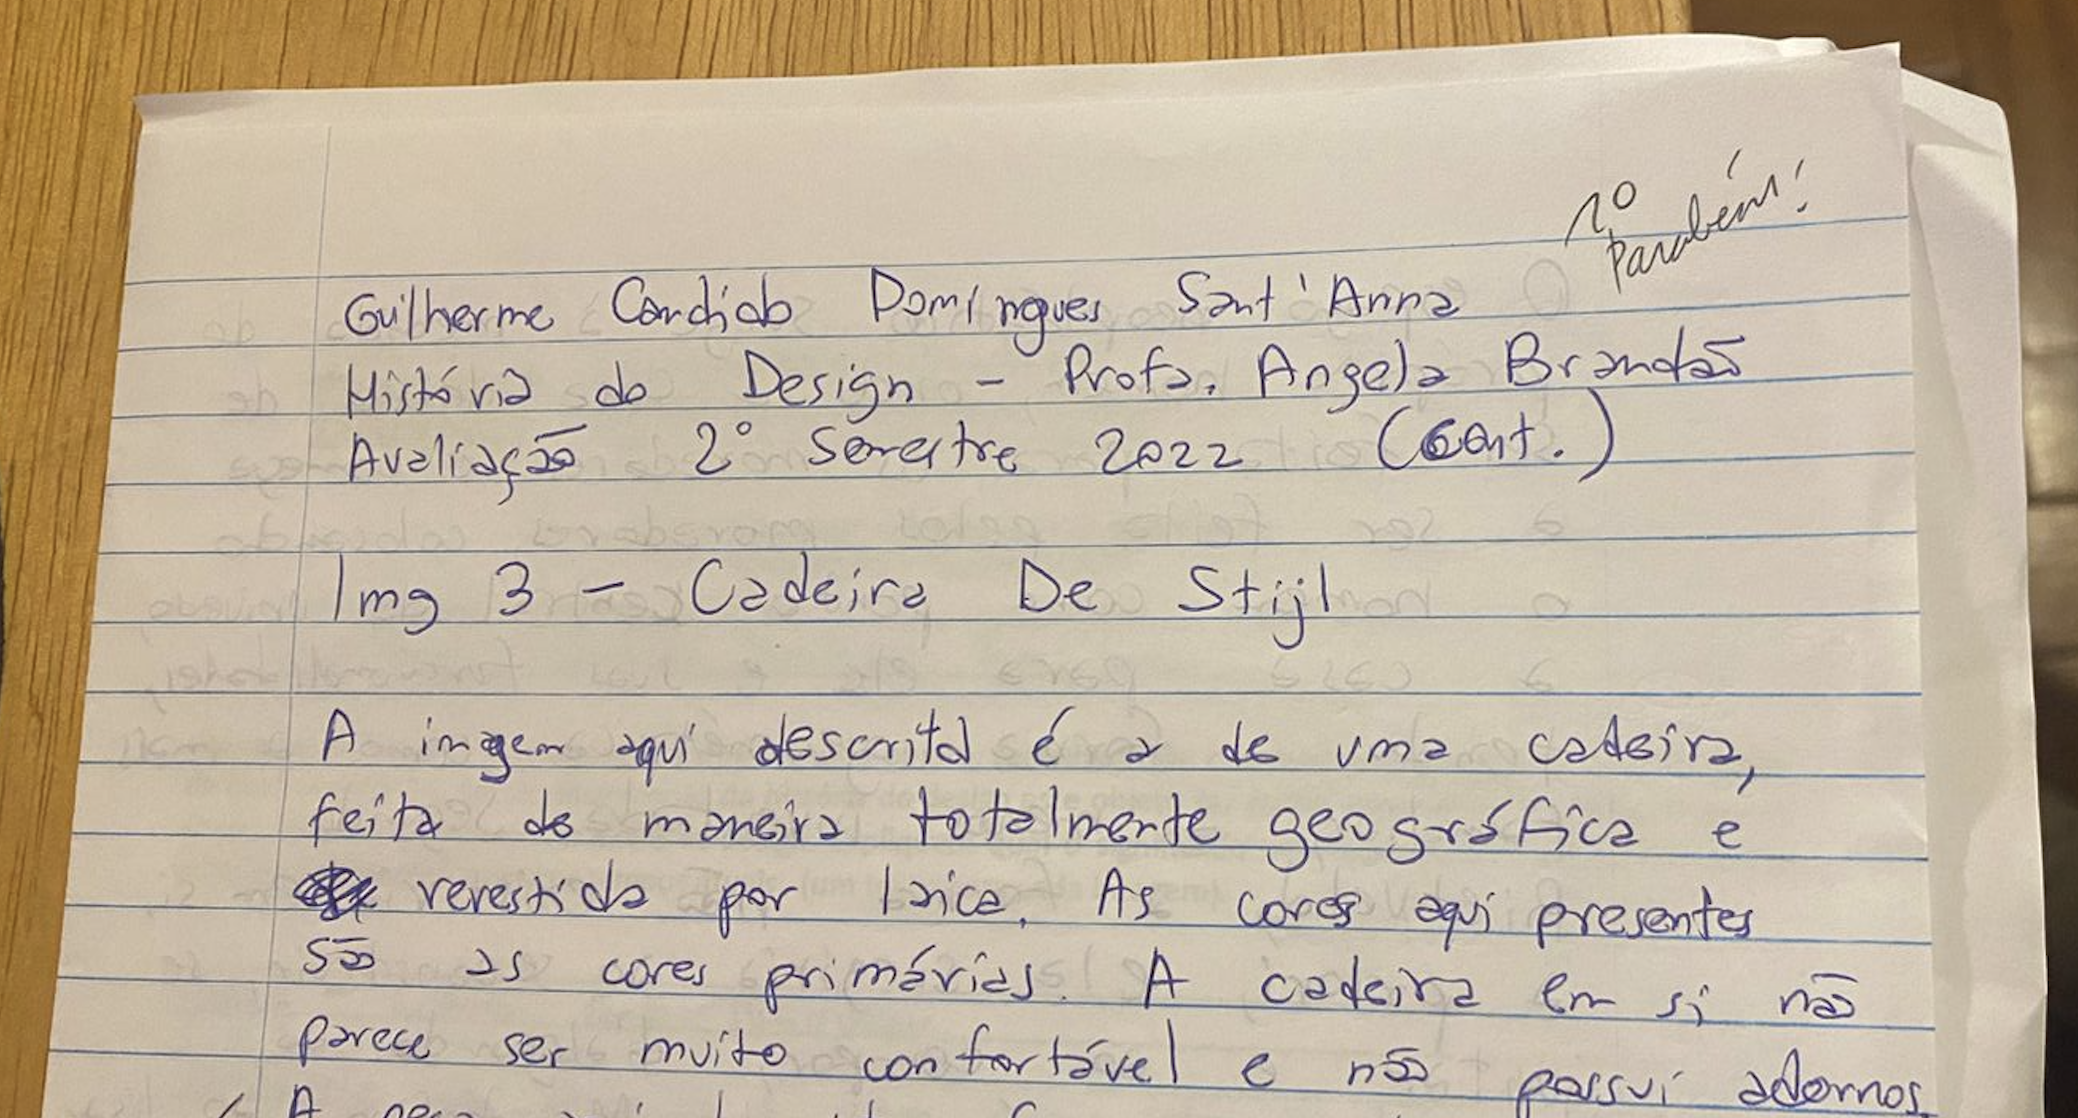 10
Parabéns!
Guilherme Candido Domingues Sant'Anna
História do Design - Profa. Angela Brandão
Avaliação 2° Semestre 2022 (Cont.)
Img 3 - Cadeira De Stijl
A imagem aqui descrita é a de uma cadeira,
feita de maneira totalmente geográfica e
revestida por laica. As cores aqui presentes
são as cores primárias. A cadeira em si não
parece ser muito confortável e não possui adornos.